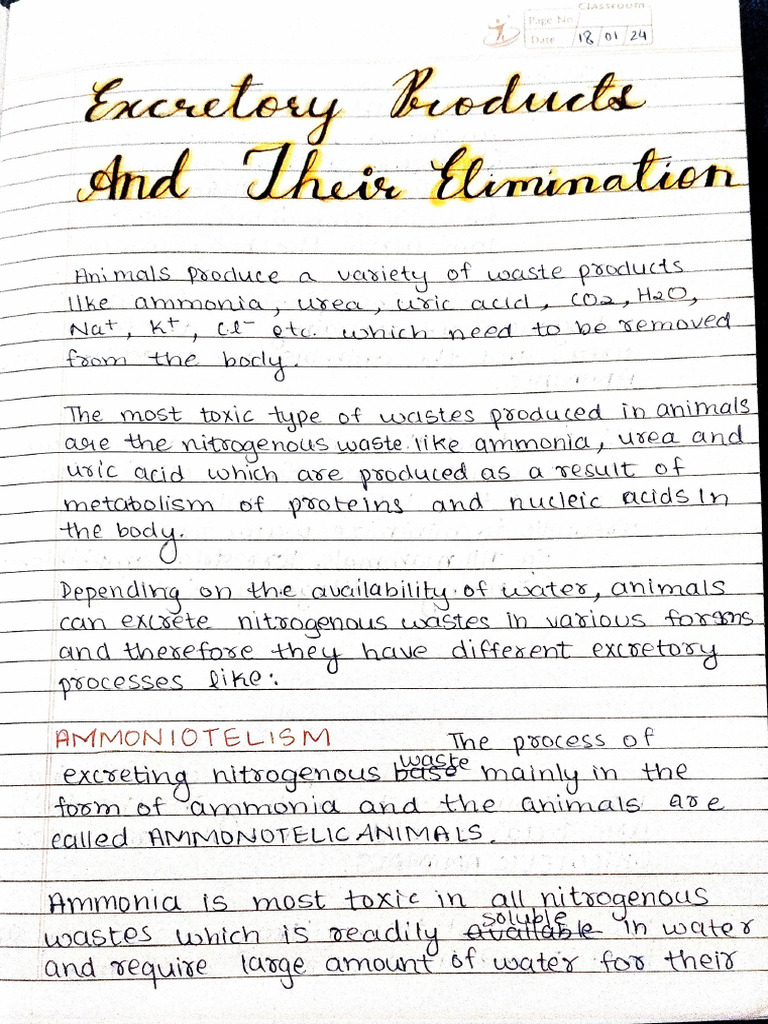 Classroom
Page No.
Date 18 01 24
Excretory Products
And Their Elimination
Animals produce a variety of waste products
like ammonia, urea, uric acid, CO2, H2O,
Na+, K+, Cl- etc. which need to be removed
from the body.
The most toxic type of wastes produced in animals
are the nitrogenous waste like ammonia, urea and
uric acid which are produced as a result of
metabolism of proteins and nucleic acids in
the body.
Depending on the availability of water, animals
can excrete nitrogenous wastes in various forms
and therefore they have different excretory
processes like:
AMMONIOTELISM The process of
excreting nitrogenous base waste mainly in the
form of ammonia and the animals are
called AMMONOTELIC ANIMALS.
Ammonia is most toxic in all nitrogenous
wastes which is readily available soluble in water
and require large amount of water for their